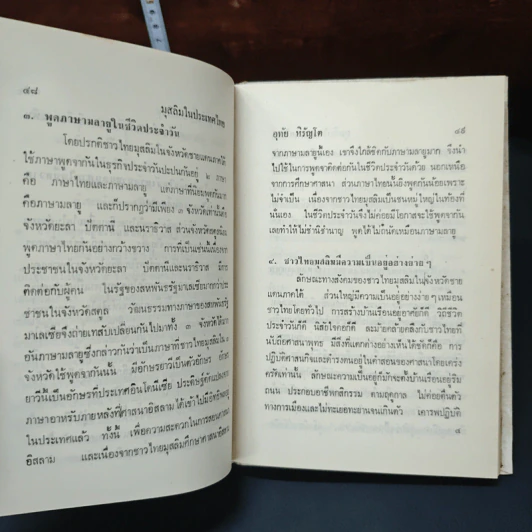 ๔๘
มุสลิมในประเทศไทย
๓. พูดภาษามลายูในชีวิตประจำวัน
โดยปรกติชาวไทยมุสลิมในจังหวัดชายแดนภาคใต้
ใช้ภาษาพูดจากันในธุรกิจประจำวันปะปนกันอยู่ ๒ ภาษา
คือ ภาษาไทยและภาษามลายู แต่ภาษาที่นิยมพูดกันมาก
คือภาษามลายู และก็ปรากฏว่ามีเพียง ๓ จังหวัดเท่านั้นคือ
จังหวัดยะลา ปัตตานี และนราธิวาส ส่วนจังหวัดสตูลนั้น
พูดภาษาไทยกันอย่างกว้างขวาง การที่เป็นเช่นนี้เนื่องจาก
ประชาชนในจังหวัดยะลา ปัตตานีและนราธิวาส มีการ
ติดต่อกับผู้คน ในรัฐของสหพันธรัฐมาเลเซียมากกว่าประ
ชาชนในจังหวัดสตูล วัฒนธรรมทางภาษาของสหพันธรัฐ
มาเลเซียจึงถ่ายเทสับเปลี่ยนกันไปมาทั้ง ๓ จังหวัดได้ง่าย
อันภาษามลายูซึ่งกล่าวกันว่าเป็นภาษาที่ชาวไทยมุสลิมใน ๓
จังหวัดใช้พูดจากันนั้น มีอักษรยาวีเป็นตัวอักษร อักษร
ยาวีนี้เป็นอักษรที่ประเทศอินโดนีเซีย ประดิษฐ์ดัดแปลงจาก
ภาษาอาหรับภายหลังที่ศาสนาอิสลามได้เข้าไปมีอิทธิพลอยู่
ในประเทศแล้ว ทั้งนี้ เพื่อความสะดวกในการสอนศาสนา
อิสลาม และเนื่องจากชาวไทยมุสลิมศึกษาศาสนาอิสลาม
อุทัย หิรัญโต
๔๙
จากภาษามลายูนี้เอง เขาจึงใกล้ชิดกับภาษามลายูมาก จึงนำ
ไปใช้ในการพูดจาติดต่อกันในชีวิตประจำวันด้วย นอกเหนือ
จากการศึกษาศาสนา ส่วนภาษาไทยนั้นถึงพูดกันน้อยเพราะ
ไม่จำเป็น เนื่องจากชาวไทยมุสลิมเป็นชนหมู่ใหญ่ในท้องที่
นั้นเอง ในชีวิตประจำวันจึงไม่ค่อยมีโอกาสจะใช้พูดจากัน
เลยทำให้ไม่ชำนิชำนาญ พูดได้ไม่ถนัดเหมือนภาษามลายู
๔. ชาวไทยมุสลิมมีความเป็นอยู่อย่างง่าย ๆ
ลักษณะทางสังคมของชาวไทยมุสลิมในจังหวัดชาย
แดนภาคใต้ ส่วนใหญ่มีความเป็นอยู่อย่างง่าย ๆ เหมือน
ชาวไทยโดยทั่วไป การสร้างบ้านเรือนอยู่อาศัยก็ดี วิถีชีวิต
ประจำวันก็ดี นิสัยใจคอก็ดี ละม้ายคล้ายคลึงกับชาวไทยที่
นับถือศาสนาพุทธ สิ่งที่แตกต่างอย่างเห็นได้ชัดก็คือ การ
ปฏิบัติศาสนกิจและดำรงตนอยู่ในคำสอนของศาสนาโดยเคร่ง
ครัดเท่านั้น ลักษณะความเป็นอยู่ก็มักจะตั้งบ้านเรือนอยู่ริม
ถนน ประกอบอาชีพกสิกรรม ตามฤดูกาล ไม่ค่อยตื่นตัว
ทางการเมืองและไม่ทะเยอทะยานจนเกินตัว เคารพปฏิบัติ